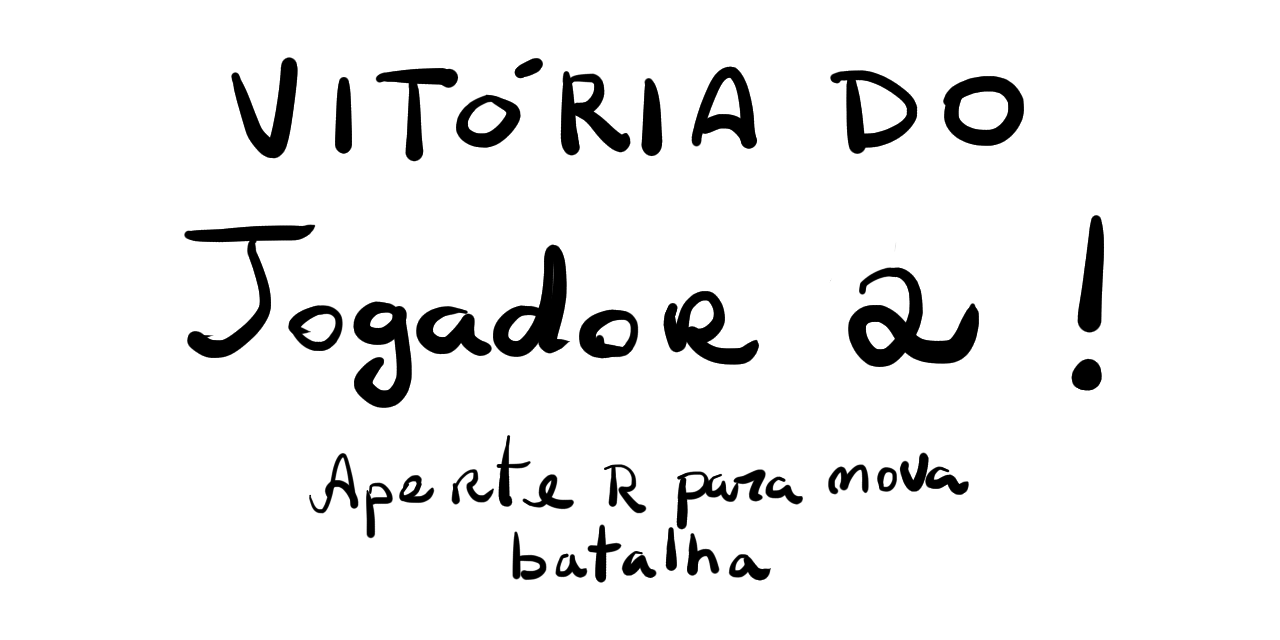 VITÓRIA DO
Jogador 2 !
Aperte R para nova
batalha